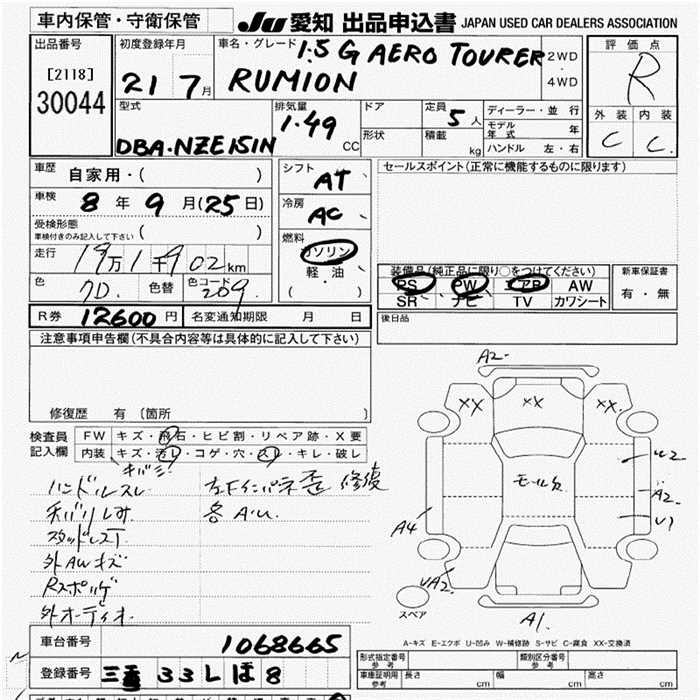 車内保管・守衛保管
JU 愛知 出品申込書 JAPAN USED CAR DEALERS ASSOCIATION
出品番号
[2118]
30044
初度登録年月
21 7月
車名・グレード 1.5 G AERO TOURER
RUMION
2WD
・
4WD
評価点
R
外装 内装
C C
型式
DBA・NZE151N
排気量
1.49
CC
ドア
形状
定員 5人
積載 kg
ディーラー・並行
モデル年式 年
ハンドル 左・右
車歴 自家用・( )
車検 8年 9月(25日)
受検形態
車検付きのみ記入して下さい ( )
走行 19万1千902km
色 色替 色コード 209
シフト
AT
冷房
AC
燃料
ガソリン
軽・油
( ・ )
セールスポイント(正常に機能するものに限ります)
装備品(純正品に限り○をつけてください)
PS PW エアB AW
SR ナビ TV カワシート
新車保証書
有・無
R券 12600円
名変通知期限 月 日
後日品
注意事項申告欄(不具合内容等は具体的に記入して下さい)
修復歴 有 (箇所 )
検査員
記入欄
FW キズ・飛石・ヒビ割・リペア跡・X要
内装 キズ・汚レ・コゲ・穴・スレ・キレ・破レ
ハンドルスレ
スタッドレス
外AWキズ
Rスポッゲ
外オーディオ
左下インパネ歪 修復
各A.U.
A2
XX XX XX
モール欠
U2
A2
U1
A4
UA2
スペア
A1
A-キズ E-エクボ U-凹み W-補修跡 S-サビ C-腐食 XX-交換済
車台番号 1068665
登録番号 三重 33 L ほ 8
形式指定番号
参考
類別区分番号
参考
車庫証明用
参考
長さ cm 幅 cm 高さ cm